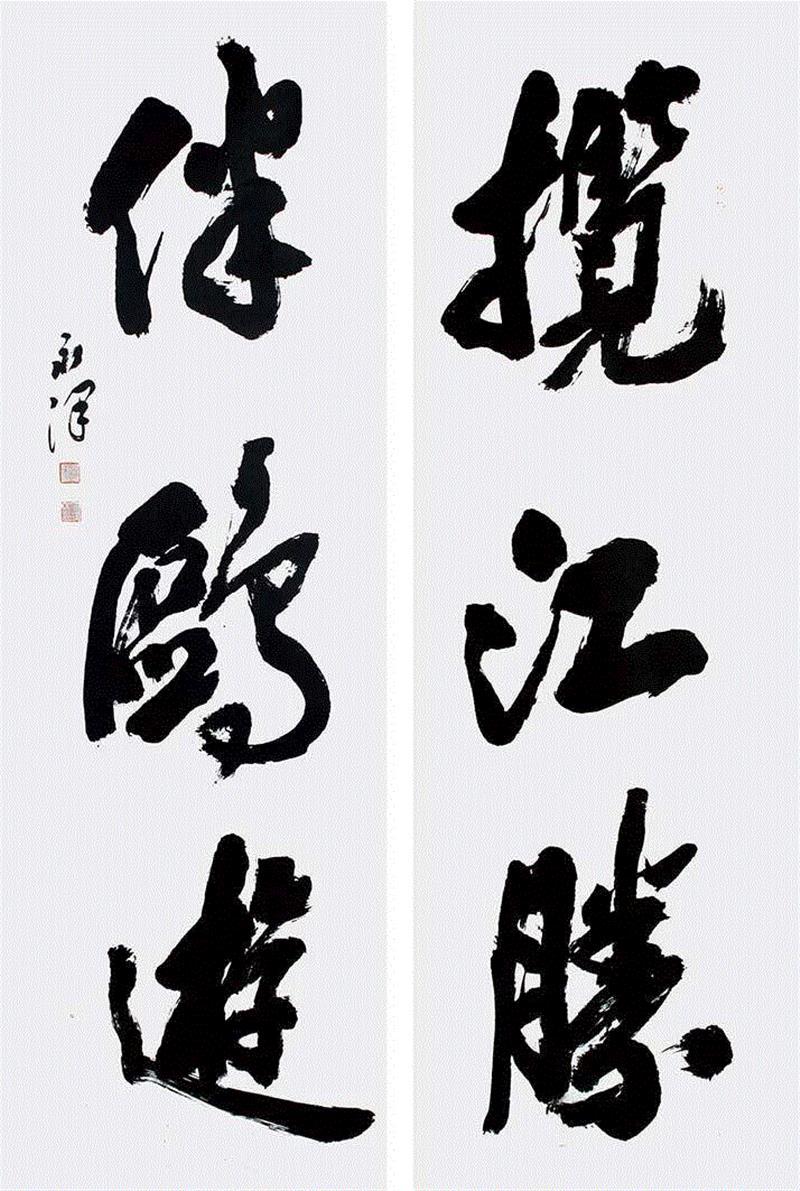 攬江勝
伴鷗遊
永澤